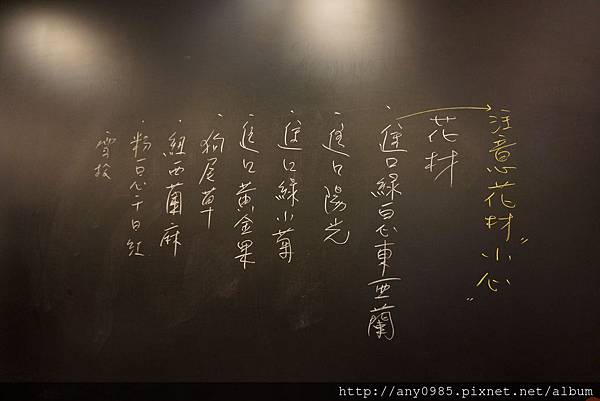 注意花材"小心"
花材
·進口綠白心東亞蘭
·進口陽光
·進口綠小菊
·進口黃金果
·狗尾草
·紐西蘭麻
·粉白心千日紅
·雪梅
http://any0985.pixnet.net/album